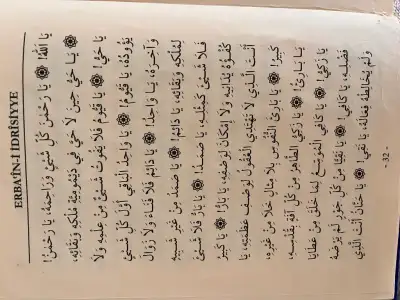 ERBAÎN-I İDRİSİYYE
يَا اَللّٰهُ! ۞ يَا رَحْمٰنَ كُلِّ شَيْءٍ وَرَاحِمَهُ، يَا رَحْمٰنُ!
۞ يَا حَيُّ حِينَ لَا حَيَّ فِي دَيْمُومِيَّةِ مُلْكِهِ وَبَقَائِهِ،
يَا حَيُّ! ۞ يَا قَيُّومُ فَلَا يَفُوتُ شَيْءٌ مِنْ عِلْمِهِ وَلَا
يَؤُدُهُ، يَا قَيُّومُ! ۞ يَا وَاحِدُ الْبَاقِي أَوَّلَ كُلِّ شَيْءٍ
وَآخِرَهُ، يَا وَاحِدُ! ۞ يَا دَائِمُ فَلَا فَنَاءَ وَلَا زَوَالَ
لِمُلْكِهِ وَبَقَائِهِ، يَا دَائِمُ! ۞ يَا صَمَدُ مِنْ غَيْرِ شَبِيهٍ
فَلَا شَيْءَ كَمِثْلِهِ، يَا صَمَدُ! ۞ يَا بَارُّ فَلَا شَيْءَ
كُفْؤُهُ يُدَانِيهِ وَلَا إِمْكَانَ لِوَصْفِهِ، يَا بَارُّ! ۞ يَا كَبِيرُ
أَنْتَ الَّذِي لَا تَهْتَدِي الْعُقُولُ لِوَصْفِ عَظَمَتِهِ، يَا
كَبِيرُ! ۞ يَا بَارِئَ النُّفُوسِ بِلَا مِثَالٍ خَلَا مِنْ غَيْرِهِ،
يَا بَارِئُ! ۞ يَا زَكِيُّ الطَّاهِرُ مِنْ كُلِّ آفَةٍ بِقُدْسِهِ،
يَا زَكِيُّ! ۞ يَا كَافِي الْمُوَسِّعُ لِمَا خَلَقَ مِنْ عَطَايَا
فَضْلِهِ، يَا كَافِي! ۞ يَا نَقِيًّا مِنْ كُلِّ جَوْرٍ لَمْ يَرْضَهُ
وَلَمْ يُخَالِطْهُ فِعَالُهُ يَا نَقِيُّ! ۞ يَا حَنَّانُ أَنْتَ الَّذِي
- 32 -